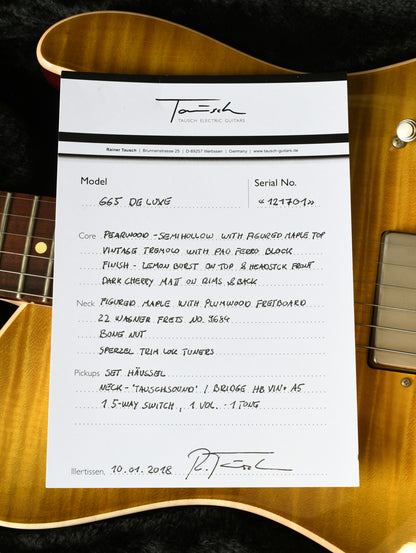 Tausch
TAUSCH ELECTRIC GUITARS
Rainer Tausch | Brunnenstrasse 25 | D-89257 Illertissen | Germany | www.tausch-guitars.de
Model Serial No.
665 DE LUXE «121701»
Core PEARWOOD - SEMIHOLLOW WITH FIGURED MAPLE TOP
VINTAGE TREMOLO WITH PAO FERRO BLOCK
FINISH - LEMON BURST ON TOP & HEADSTCK FRONT
DARK CHERRY MATT ON RIMS & BACK
Neck FIGURED MAPLE WITH PLUMWOOD FRETBOARD
22 WAGNER FRETS NO. 9684
BONE NUT
SPERZEL TRIM LOK TUNERS
Pickups SET HÄUSSEL
NECK - 'TAUSCHSOUND' / BRIDGE HB VIN+ A5
1 5-WAY SWITCH, 1 VOL. - 1 TONE
Illertissen, 10.01.2018 R. Tausch